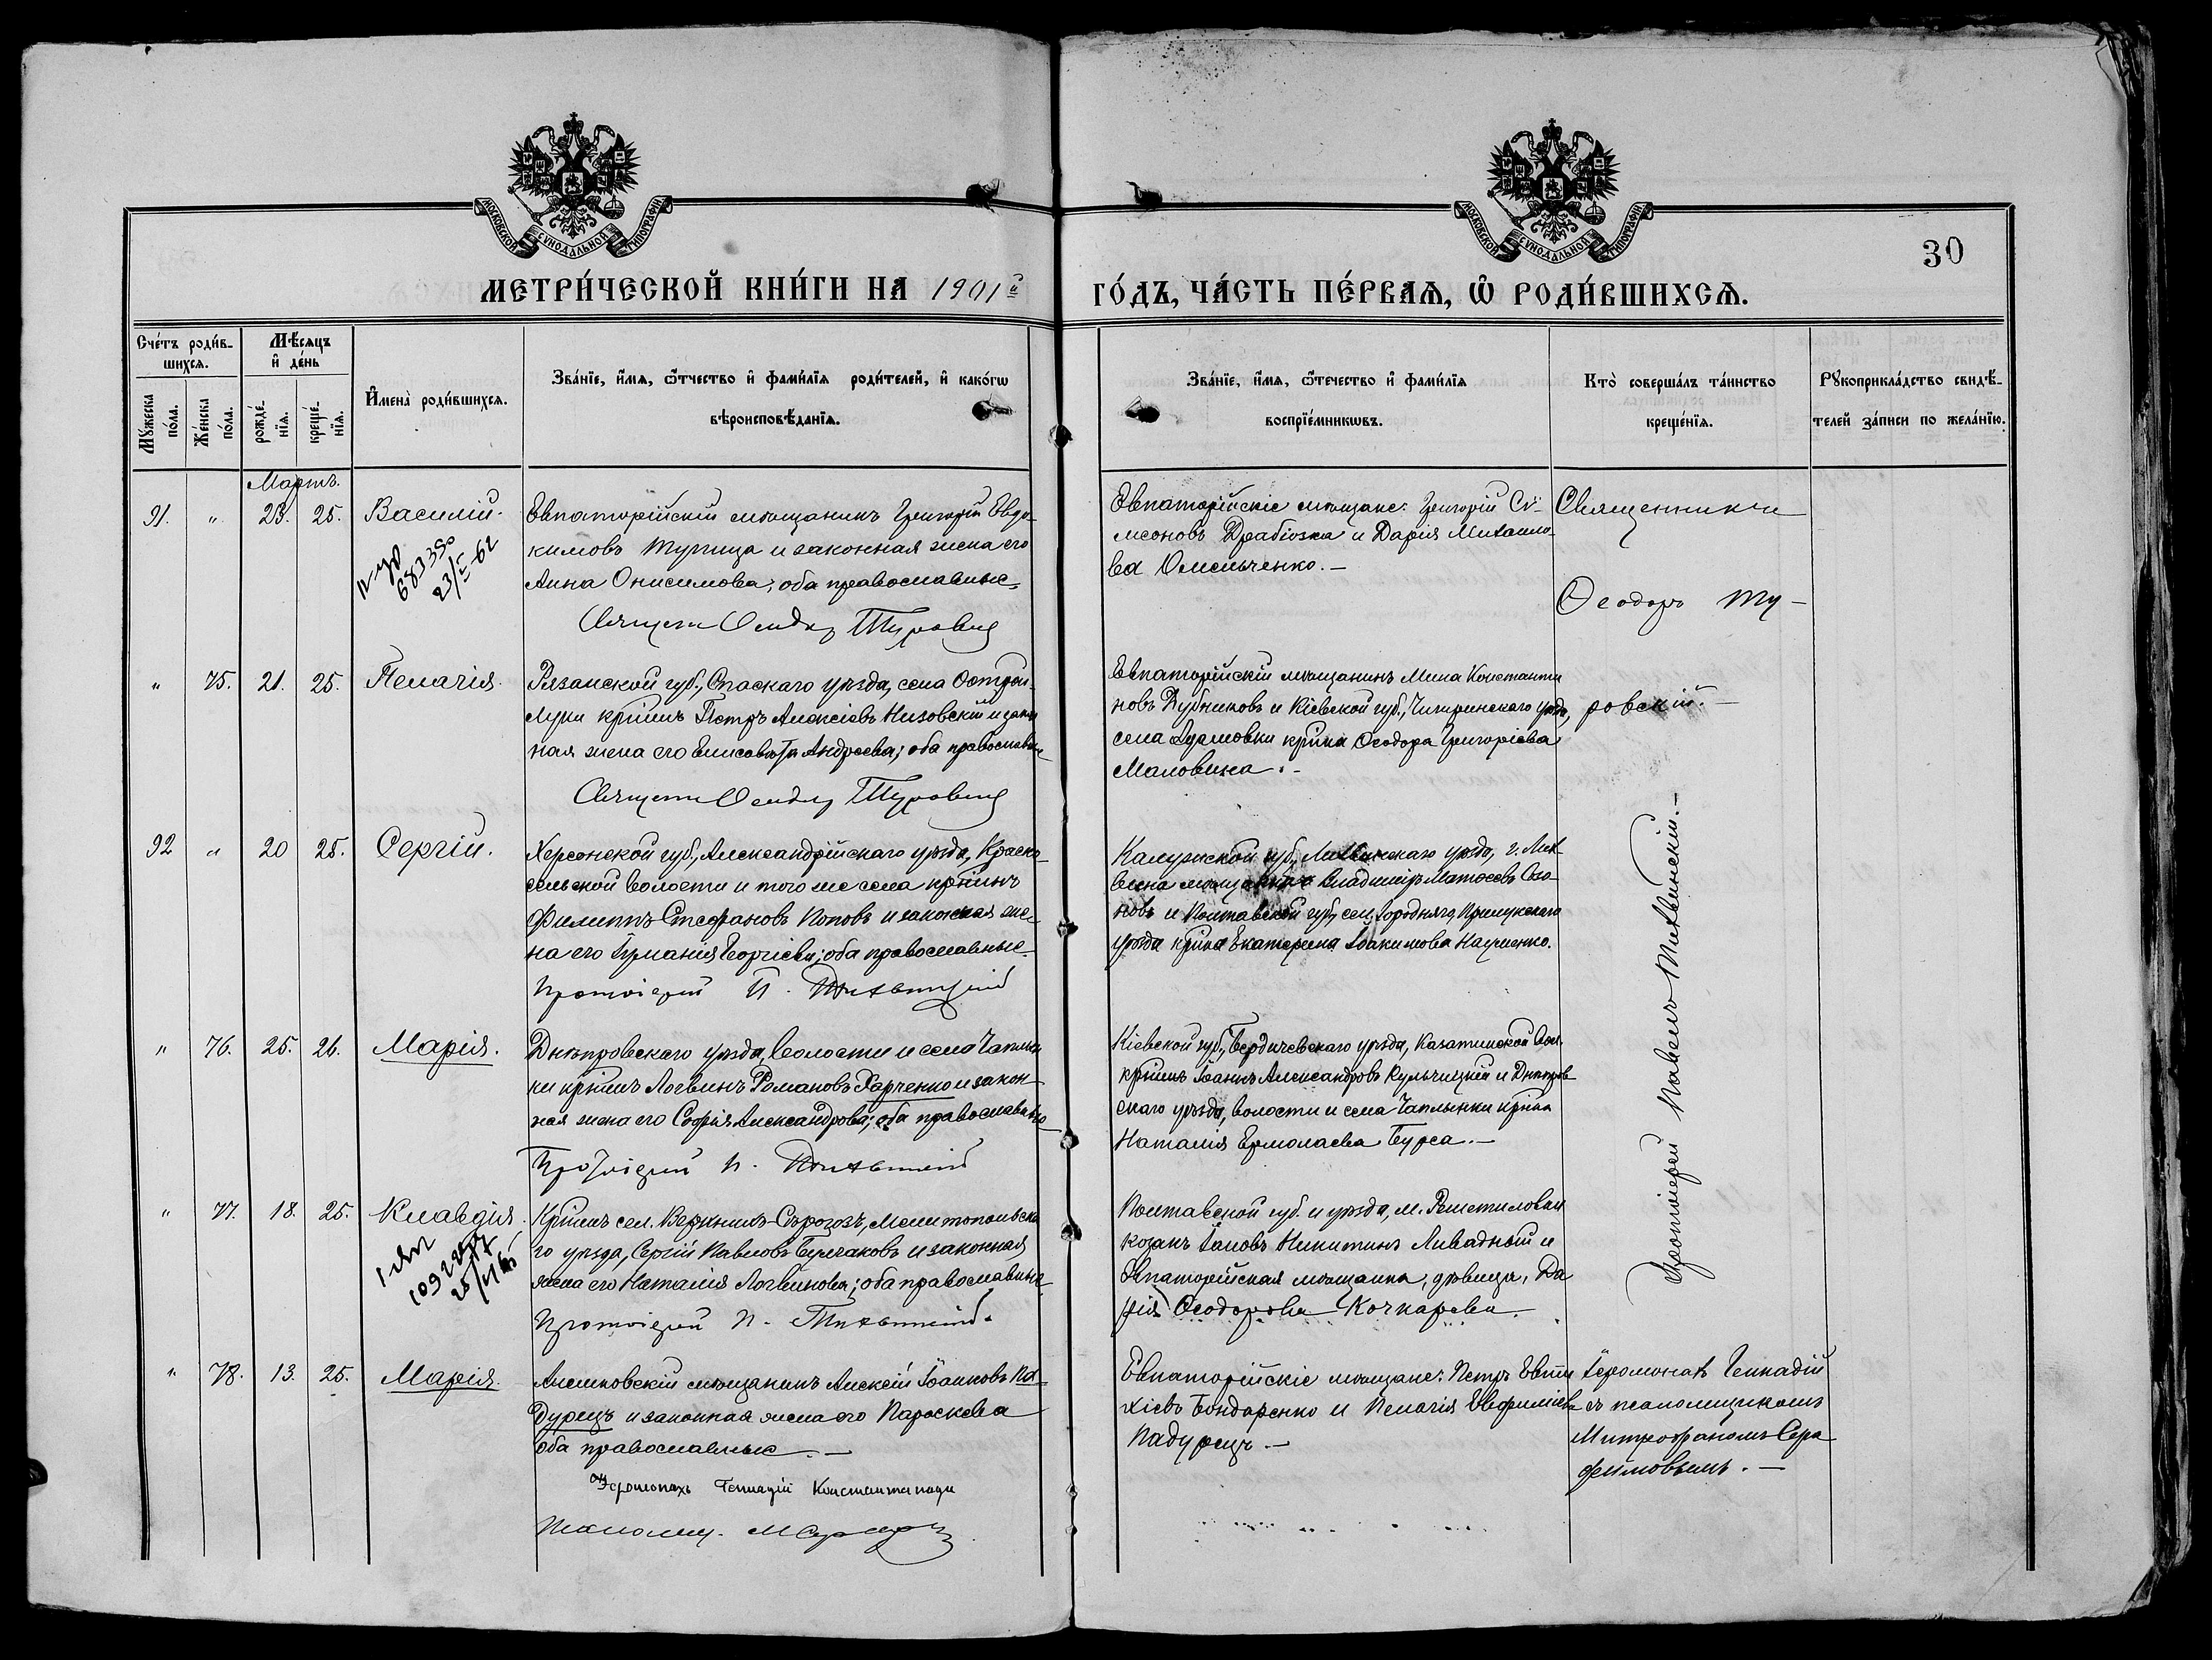 МОСКОВСКОЙ СУНОДАЛЬНОЙ ТИПОГРАФІИ
МОСКОВСКОЙ СУНОДАЛЬНОЙ ТИПОГРАФІИ
30
МЕТРИ́ЧЕСКОЙ КНИ́ГИ НА 1901й
ГО́ДЪ, ЧА́СТЬ ПЕ́РВАѦ, Ѡ҆ РОДИ́ВШИХСѦ.
Сче́тъ роди́в-
шихсѧ.
Мꙋ́жеска по́ла.
Же́нска по́ла.
Мѣ́сѧцъ
и҆ де́нь
рожде́-нїѧ.
креще́-нїѧ.
И҆мена̀ роди́вшихсѧ.
Зва́нїе, и҆́мѧ, ѻ҆́тчество и҆ фами́лїѧ роди́телей, и҆ како́гѡ
вѣроисповѣ́данїѧ.
Зва́нїе, и҆́мѧ, ѻ҆те́чество и҆ фами́лїѧ
воспрїе́мникѡвъ.
Кто̀ соверша́лъ та́инство
креще́нїѧ.
Рꙋкоприкла́дство свидѣ́-
телей за́писи по жела́нїю.
Мартъ.
91. " 23. 25. Василій.
Евпаторійскій мѣщанинъ Григорій Евдо-
кимовъ Тупица и законная жена его
Анна Онисимова; оба православные
Евпаторійскіе мѣщане: Григорій Си-
меоновъ Драбіозка и Дарія Михаило-
ва Омельченко. –
Священники
Ѳеодоръ Ту-
68338
23/V-62
" 75. 21. 25. Пелагія.
Рязанской губ., Спаскаго уѣзда, села Острой
Луки кр–инъ Петръ Алексіевъ Низовскій и закон
ная жена его Елисавета Андреева; оба православные
Евпаторійскій мѣщанинъ Мина Константи
новъ Дубниковъ и Кіевской губ., Чигиринскаго уѣзда,
села кр–нка Ѳеодора Григоріева
Маловина. –
ровскій. –
92 " 20 25. Сергій.
Херсонской губ., Александрійскаго уѣзда, Красно-
сельской волости и того же села кр–нинъ
Филиппъ Стефановъ Поповъ и законная же-
на его Іуліанія Георгіева; оба православные.
Протоіерей П. Тихвинскій
Калужской губ., Лихвинскаго уѣзда, г. Лих-
вина Владиміръ Матѳеевъ
новъ и Полтавской губ., сел. Городняга, Прилукскаго
уѣзда кр–нка Екатерина Іоакимова Науменко.
Протоіерей Павелъ Тихвинскій. –
" 76. 25. 26. Марія.
Днѣпровскаго уѣзда, волости и села Чаплин
ки кр–нинъ Логвинъ Романовъ Харченко и закон-
ная жена его Софія Александрова; оба православные
Протоіерей П. Тихвинскій
Кіевской губ., Бердичевскаго уѣзда, Казатинской вол.
кр–нинъ Іоаннъ Александровъ Кульчицкій и Днѣпров
скаго уѣзда, волости и села Чаплынки кр–нка
Наталія Ермолаева Бурса. –
" 77. 18. 25. Клавдія.
Кр–нинъ сел. Верхнихъ-Сѣрогозъ, Мелитопольска
го уѣзда, Сергій Павловъ Бурлаковъ и законная
жена его Наталія Логвинова; оба православные
Протоіерей П. Тихвинскій.
Полтавской губ. и уѣзда, м. Решетиловки
козакъ Іаковъ Никитинъ Ливадный и
Евпаторійская мѣщанка, дѣвица, Да
рія Ѳеодорова Кочкарева.
" 78. 13. 25. Марія.
Алешковскій мѣщанинъ Алексій Іоанновъ Па-
дурецъ и законная жена его Параскева
оба православные. –
Іеромонахъ Геннадій
Псаломщ.
Евпаторійскіе мѣщане: Петръ Евти
хіевъ Бондаренко и Пелагія Евфиміева
Падурецъ. –
Іеромонахъ Геннадій
съ псаломщикомъ
Митрофаномъ Сера
фимовымъ. –